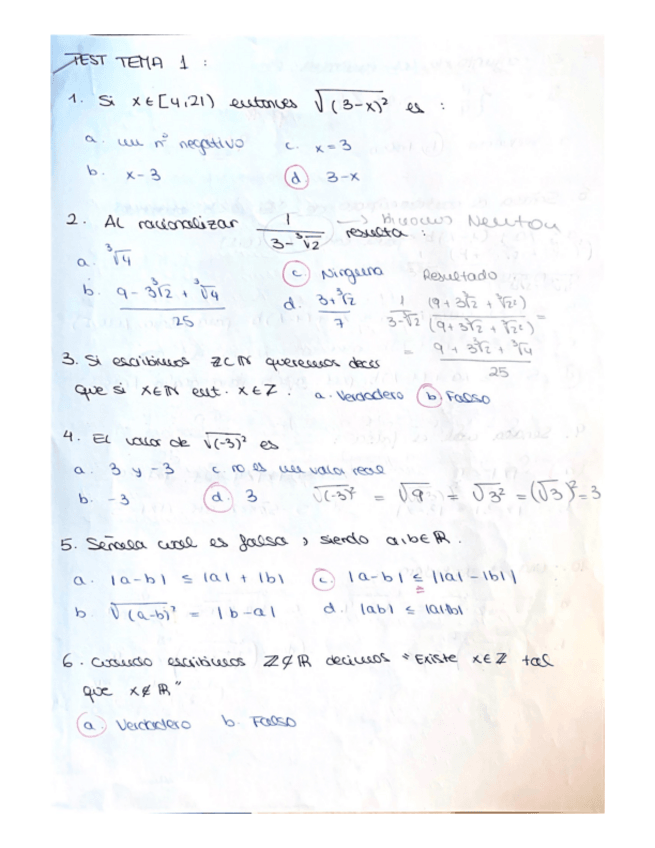 TEST TEMA 1 :
1. Si x∈[4,21) entonces √(3-x)² es :
a. un nº negativo c. x=3
b. x-3 d. 3-x
2. Al racionalizar 1/(3-∛2) → Binomio Newton resulta :
a. ∛4 c. Ninguna Resultado
b. (9-3∛2+∛4)/25 d. (3+∛2)/7 1/(3-∛2) (9+3∛2+∛2²)/(9+3∛2+∛2²) =
= (9+3∛2+∛4)/25
3. Si escribimos ℤ⊂ℕ queremos decir
que si x∈ℕ ent. x∈ℤ. a. Verdadero b. Falso
4. El valor de √(-3)² es
a. 3 y -3 c. no es un valor real
b. -3 d. 3 √(-3)² = √9 = √3² = (√3)² = 3
5. Señala cual es falsa, siendo a,b∈ℝ.
a. |a-b| ≤ |a| + |b| c. |a-b| ≤ ||a|-|b||
b. √(a-b)² = |b-a| d. |ab| ≤ |a||b|
6. Cuando escribimos ℤ⊄ℝ decimos "Existe x∈ℤ tal
que x∉ℝ"
a. Verdadero b. Falso